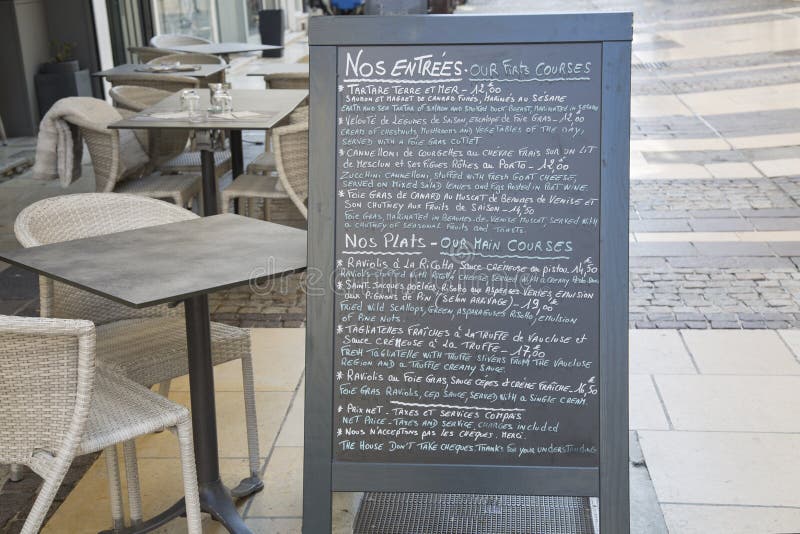 NOS ENTRÉES - OUR FIRTS COURSES
* TARTARE TERRE ET MER - 12,00
SAUMON ET MAGRET DE CANARD FUMÉS, MARINÉS AU SÉSAME
EARTH AND SEA TARTAR OF SALMON AND SMOKED DUCK BREAST, MARINATED IN SESAME
* VELOUTÉ DE LEGUMES DE SAISON, ESCALOPE DE FOIE GRAS - 12,00
CREAM OF CHESTNUTS, MUSHROOMS AND VEGETABLES OF THE DAY,
SERVED WITH A FOIE GRAS CUTLET
* CANNELLONI DE COURGETTES AU CHÈVRE FRAIS SUR UN LIT
DE MESCLUN ET SES FIGUES RÔTIES AU PORTO - 12,00 €
ZUCCHINI CANNELLONI, STUFFED WITH FRESH GOAT CHEESE,
SERVED ON MIXED SALAD LEAVES AND FIGS ROSTED IN PORT WINE.
* FOIE GRAS DE CANARD AU MUSCAT DE BEAUMES DE VENISE ET
SON CHUTNEY AUX FRUITS DE SAISON - 14,50
FOIE GRAS, MARINATED IN BEAUMES-DE-VENISE MUSCAT, SERVED WITH
A CHUTNEY OF SEASONAL FRUITS AND TOASTS.
NOS PLATS - OUR MAIN COURSES
* RAVIOLIS À LA RICOTTA SAUCE CRÉMEUSE AU PISTOU. 14,50 €
RAVIOLIS STUFFED WITH RICOTTA CHEESE, SERVED WITH A CREAM AND PESTO
* SAINT. JACQUES POÊLÉES, RISOTTO AUX ASPERGES VERTES, EMULSION
AUX PIGNONS DE PIN (SELON ARRIVAGE) - 19,00 €
FRIED WILD SCALLOPS, GREEN, ASPARAGUSES RISOTTO, EMULSION
OF PINE NUTS.
* TAGLIATELLES FRAÎCHES À LA TRUFFE DE VAUCLUSE ET
SAUCE CRÉMEUSE À LA TRUFFE - 17,00 €
FRESH TAGLIATELLE WITH TRUFFLE SLIVERS FROM THE VAUCLUSE
REGION AND A TRUFFLE CREAMY SAUCE
* RAVIOLIS AU FOIE GRAS, SAUCE CÈPES ET CRÈME FRAÎCHE - 16,50 €
FOIE GRAS RAVIOLIS, CEP SAUCE, SERVED WITH A SINGLE CREAM
* PRIX NET - TAXES ET SERVICES COMPRIS
NET PRICE - TAXES AND SERVICE CHARGES INCLUDED
* NOUS N'ACCEPTONS PAS LES CHÈQUES. MERCI.
THE HOUSE DON'T TAKE CHEQUES. THANKS FOR YOUR UNDERSTANDING
dreamstime